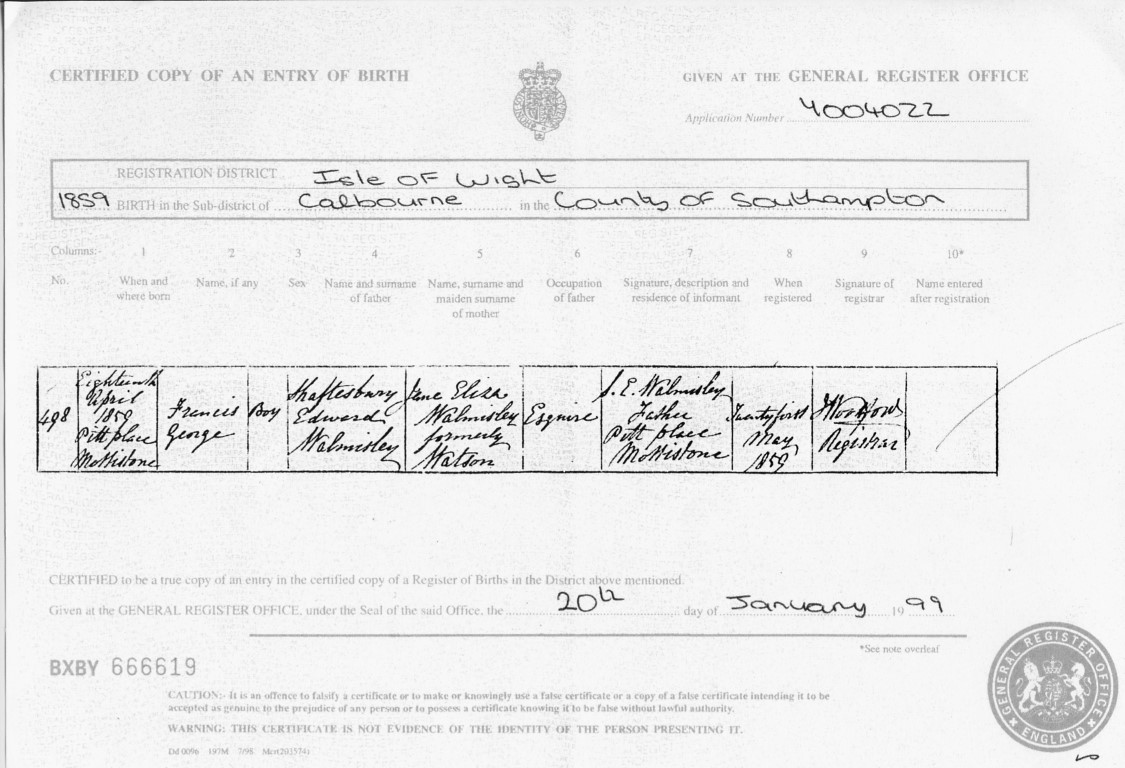 CERTIFIED COPY OF AN ENTRY OF BIRTH
GIVEN AT THE GENERAL REGISTER OFFICE
Application Number Y004022
REGISTRATION DISTRICT Isle of Wight
1859 BIRTH in the Sub-district of Calbourne in the County of Southampton
Columns:- 1 2 3 4 5 6 7 8 9 10*
No. When and where born Name, if any Sex Name and surname of father Name, surname and maiden surname of mother Occupation of father Signature, description and residence of informant When registered Signature of registrar Name entered after registration
498
Eighteenth
April
1859
Pitt place
Mottistone
Francis
George
Boy
Shaftesbury
Edward
Walmisley
Jane Eliza
Walmisley
formerly
Watson
Esquire
S. E. Walmisley
Father
Pitt place
Mottistone
Twentyfirst
May
1859
Registrar
CERTIFIED to be a true copy of an entry in the certified copy of a Register of Births in the District above mentioned.
Given at the GENERAL REGISTER OFFICE, under the Seal of the said Office, the 20th day of January 1999
*See note overleaf
BXBY 666619
CAUTION:- It is an offence to falsify a certificate or to make or knowingly use a false certificate or a copy of a false certificate intending it to be
accepted as genuine to the prejudice of any person or to possess a certificate knowing it to be false without lawful authority.
WARNING: THIS CERTIFICATE IS NOT EVIDENCE OF THE IDENTITY OF THE PERSON PRESENTING IT.
Dd 0096 197M 7/98 Mcr(203574)
GENERAL REGISTER OFFICE
ENGLAND